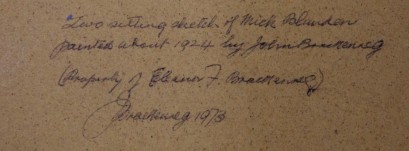 Two sitting sketch. of Mick Blunden
painted about 1924 by John Brackenreg
(Property of Eleanor F. Brackenreg)
JBrackenreg 1973